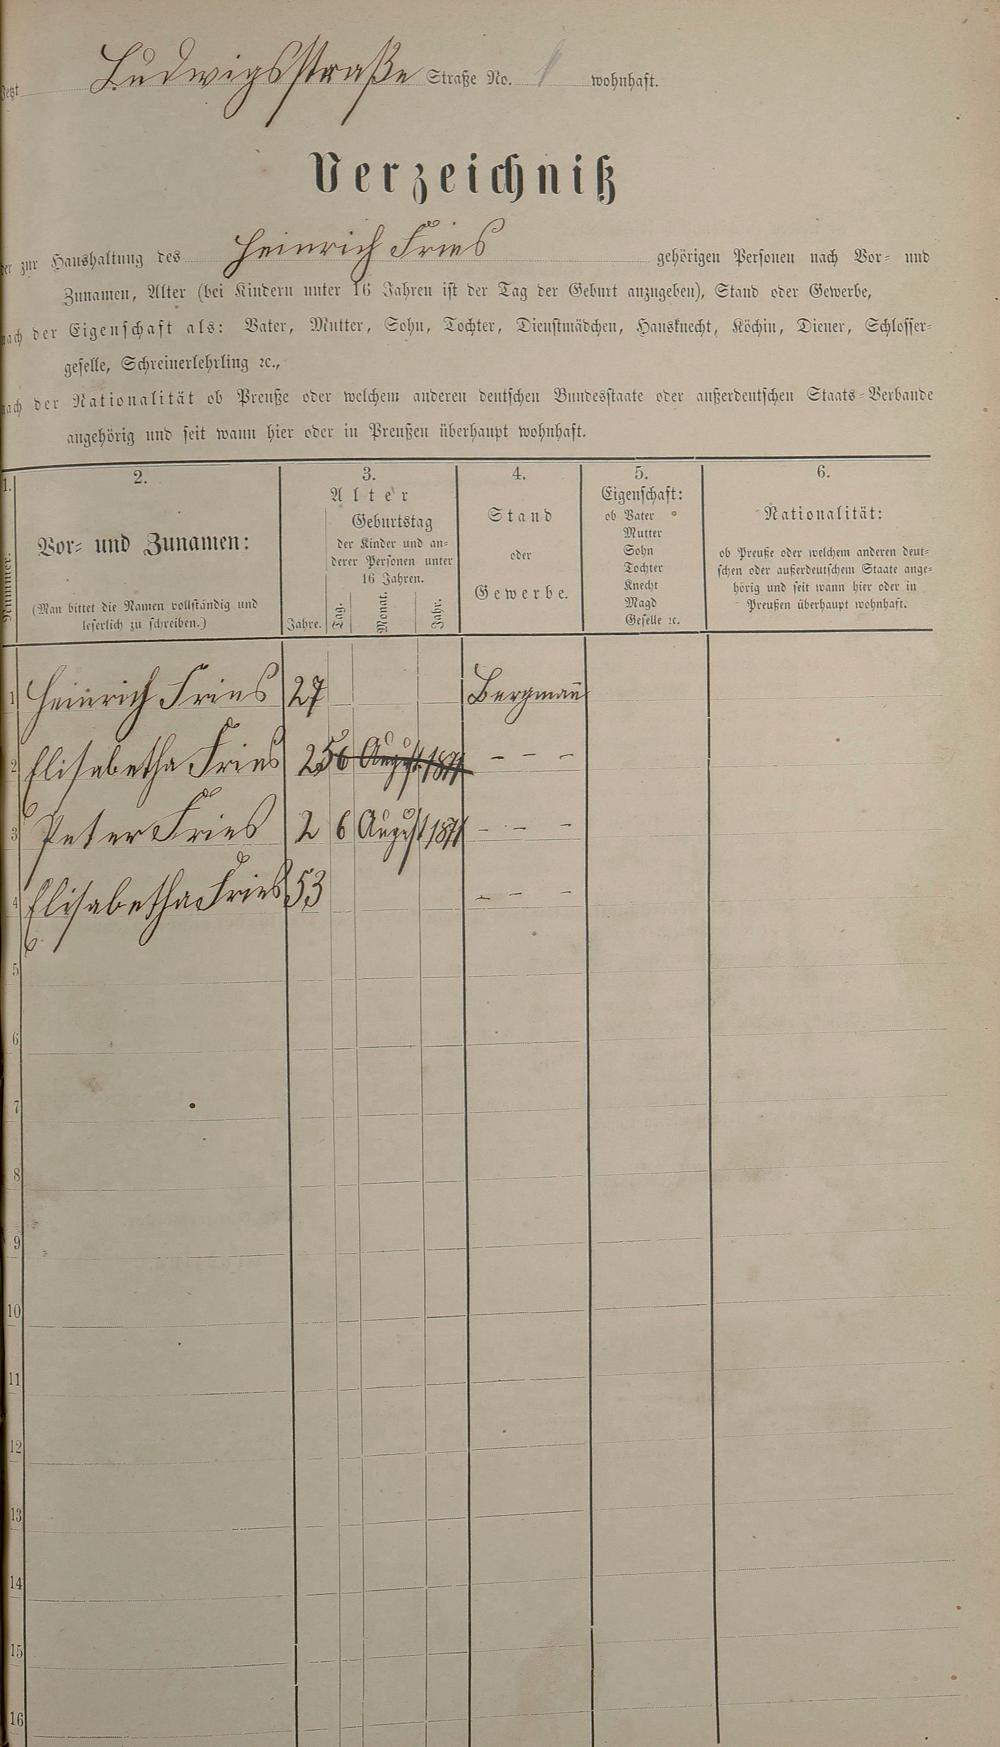 Jetzt Ludwigsstraße Straße No. 1 wohnhaft.
Verzeichniß
der zur Haushaltung des Heinrich Fries gehörigen Personen nach Vor- und
Zunamen, Alter (bei Kindern unter 16 Jahren ist der Tag der Geburt anzugeben), Stand oder Gewerbe,
nach der Eigenschaft als: Vater, Mutter, Sohn, Tochter, Dienstmädchen, Hausknecht, Köchin, Diener, Schlosser-
geselle, Schreinerlehrling ꝛc.,
nach der Nationalität ob Preuße oder welchem anderen deutschen Bundesstaate oder außerdeutschen Staats-Verbande
angehörig und seit wann hier oder in Preußen überhaupt wohnhaft.
1.
Nummer.
2.
Vor- und Zunamen:
(Man bittet die Namen vollständig und
leserlich zu schreiben.)
3.
Alter
Geburtstag
der Kinder und an-
derer Personen unter
16 Jahren.
Jahre. Tag. Monat. Jahr.
4.
Stand
oder
Gewerbe.
5.
Eigenschaft:
ob Vater
Mutter
Sohn
Tochter
Knecht
Magd
Geselle ꝛc.
6.
Nationalität:
ob Preuße oder welchem anderen deut-
schen oder außerdeutschem Staate ange-
hörig und seit wann hier oder in
Preußen überhaupt wohnhaft.
1 Heinrich Fries 27 Bergmann
2 Elisabetha Fries 25 6 August 1871 - - -
3 Peter Fries 2 6 August 1871 - - -
4 Elisabetha Fries 53 - - -
5
6
7
8
9
10
11
12
13
14
15
16